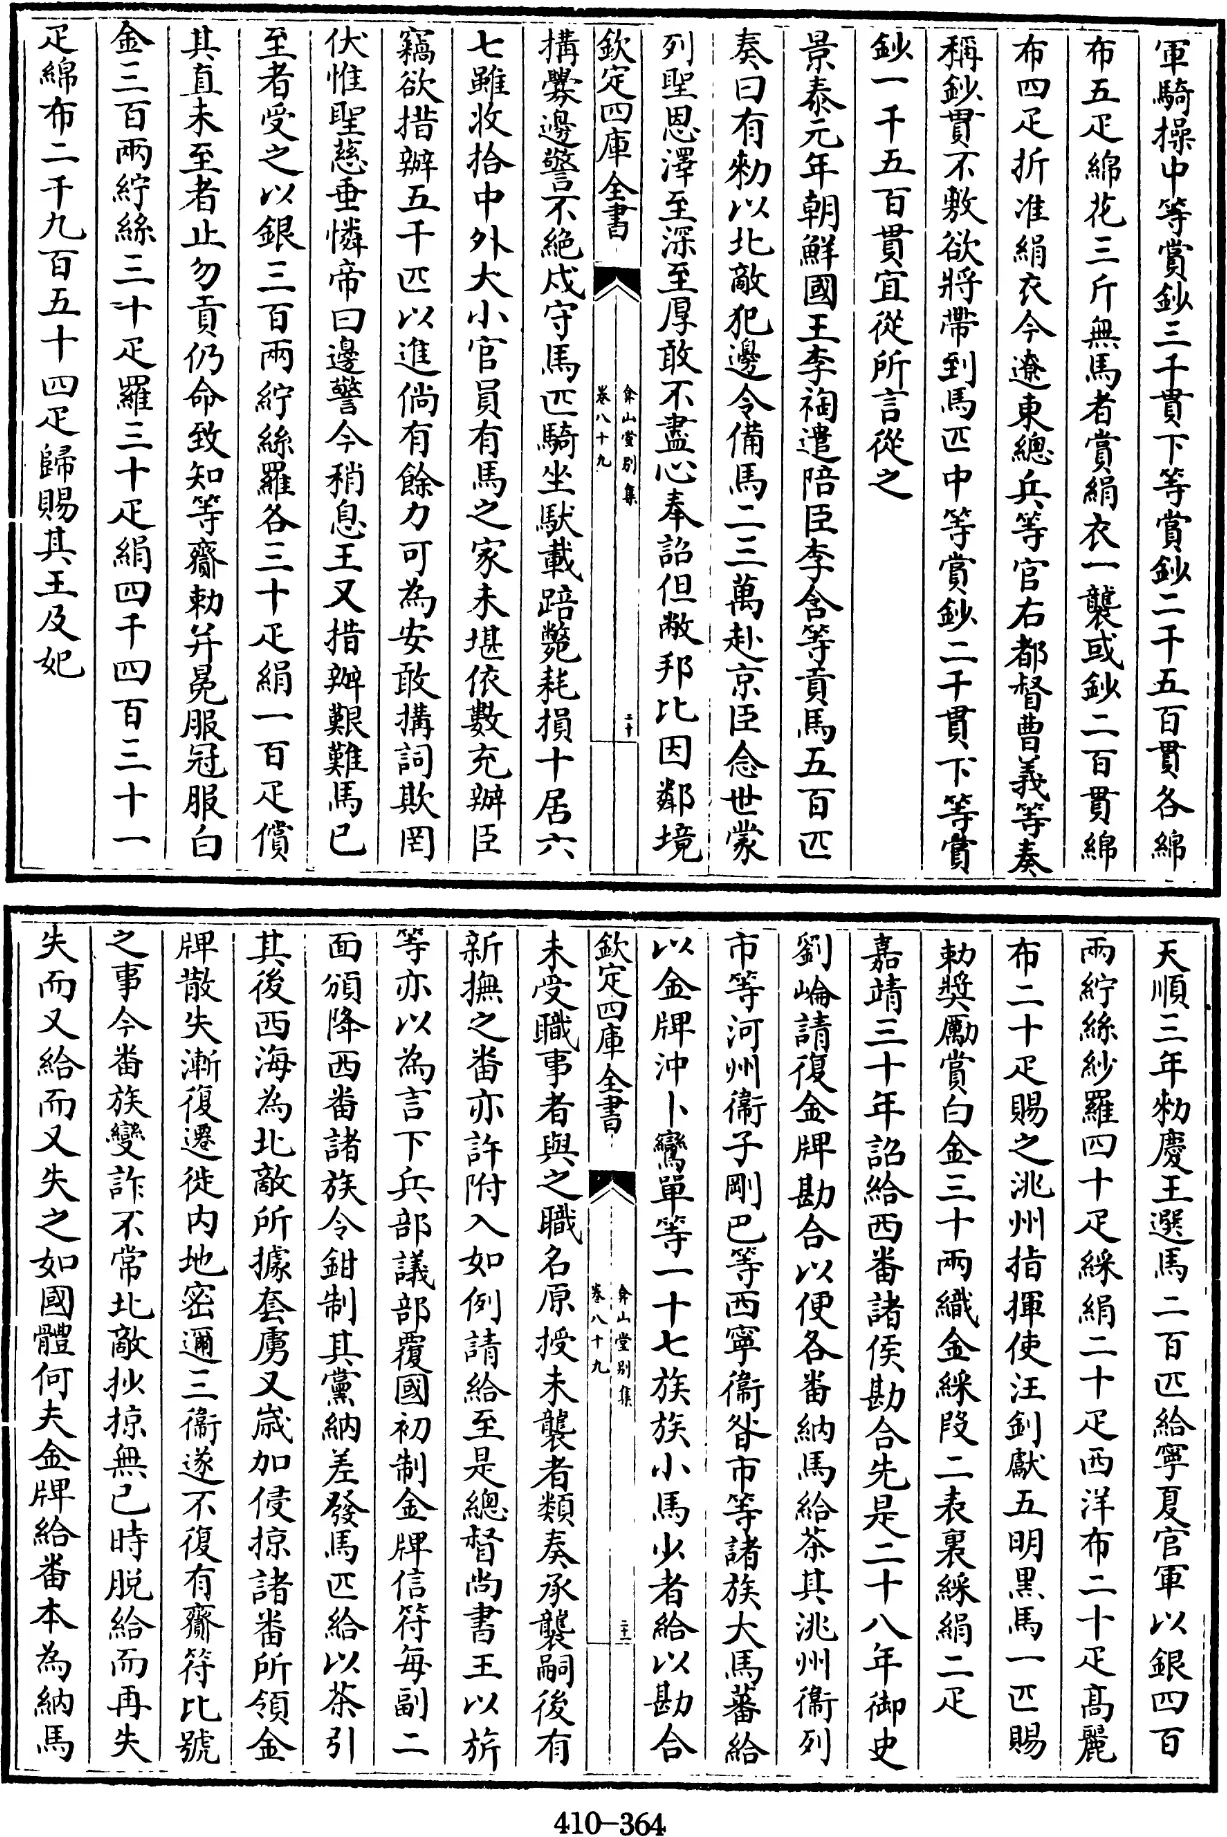 軍騎操中等賞鈔三千貫下等賞鈔二千五百貫各綿
布五疋綿花三斤無馬者賞絹衣一襲或鈔二百貫綿
布四疋折准絹衣今遼東總兵等官右都督曹義等奏
稱鈔貫不敷欲將帶到馬匹中等賞鈔二千貫下等賞
鈔一千五百貫宜從所言從之
景泰元年朝鮮國王李祹遣陪臣李含等貢馬五百匹
奏曰有勅以北敵犯邊令備馬二三萬赴京臣念世蒙
列聖恩澤至深至厚敢不盡心奉詔但敝邦比因鄰境
欽定四庫全書
弇山堂別集
卷八十九
二十
搆釁邊警不絶戍守馬匹騎坐馱載踣斃耗損十居六
七雖收拾中外大小官員有馬之家未堪依數充辦臣
竊欲措辦五千匹以進倘有餘力可為安敢搆詞欺罔
伏惟聖慈垂憐帝曰邊警今稍息王又措辦艱難馬已
至者受之以銀三百兩紵絲羅各三十疋絹一百疋償
其直未至者止勿貢仍命致知等齎勅并冕服冠服白
金三百兩紵絲三十疋羅三十疋絹四千四百三十一
疋綿布二千九百五十四疋歸賜其王及妃
天順三年勅慶王選馬二百匹給寧夏官軍以銀四百
兩紵絲紗羅四十疋綵絹二十疋西洋布二十疋髙麗
布二十疋賜之洮州指揮使汪釗獻五明黒馬一匹賜
勅奬勵賞白金三十兩織金綵段二表裏綵絹二疋
嘉靖三十年詔給西番諸侯勘合先是二十八年御史
劉崙請復金牌勘合以便各番納馬給茶其洮州衞列
市等河州衞子剛巴等西寧衞昝市等諸族大馬蕃給
以金牌沖卜鸞單等一十七族族小馬少者給以勘合
欽定四庫全書
弇山堂別集
卷八十九
二十一
未受職事者與之職名原授未襲者類奏承襲嗣後有
新撫之番亦許附入如例請給至是總督尚書王以旂
等亦以為言下兵部議部覆國初制金牌信符每副二
面頒降西番諸族令鉗制其黨納差發馬匹給以茶引
其後西海為北敵所據套虜又嵗加侵掠諸番所領金
牌散失漸復遷徙内地密邇三衞遂不復有齎符比號
之事今番族變詐不常北敵抄掠無已時脱給而再失
失而又給而又失之如國體何夫金牌給番本為納馬
410-364